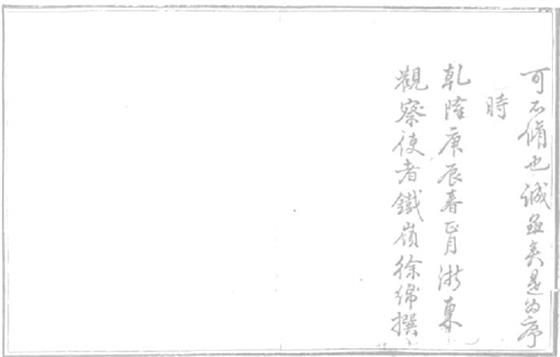 可不脩也誠亟矣是為序
時
乾隆庚辰春正月浙東
觀察使者鐵嶺徐綿撰